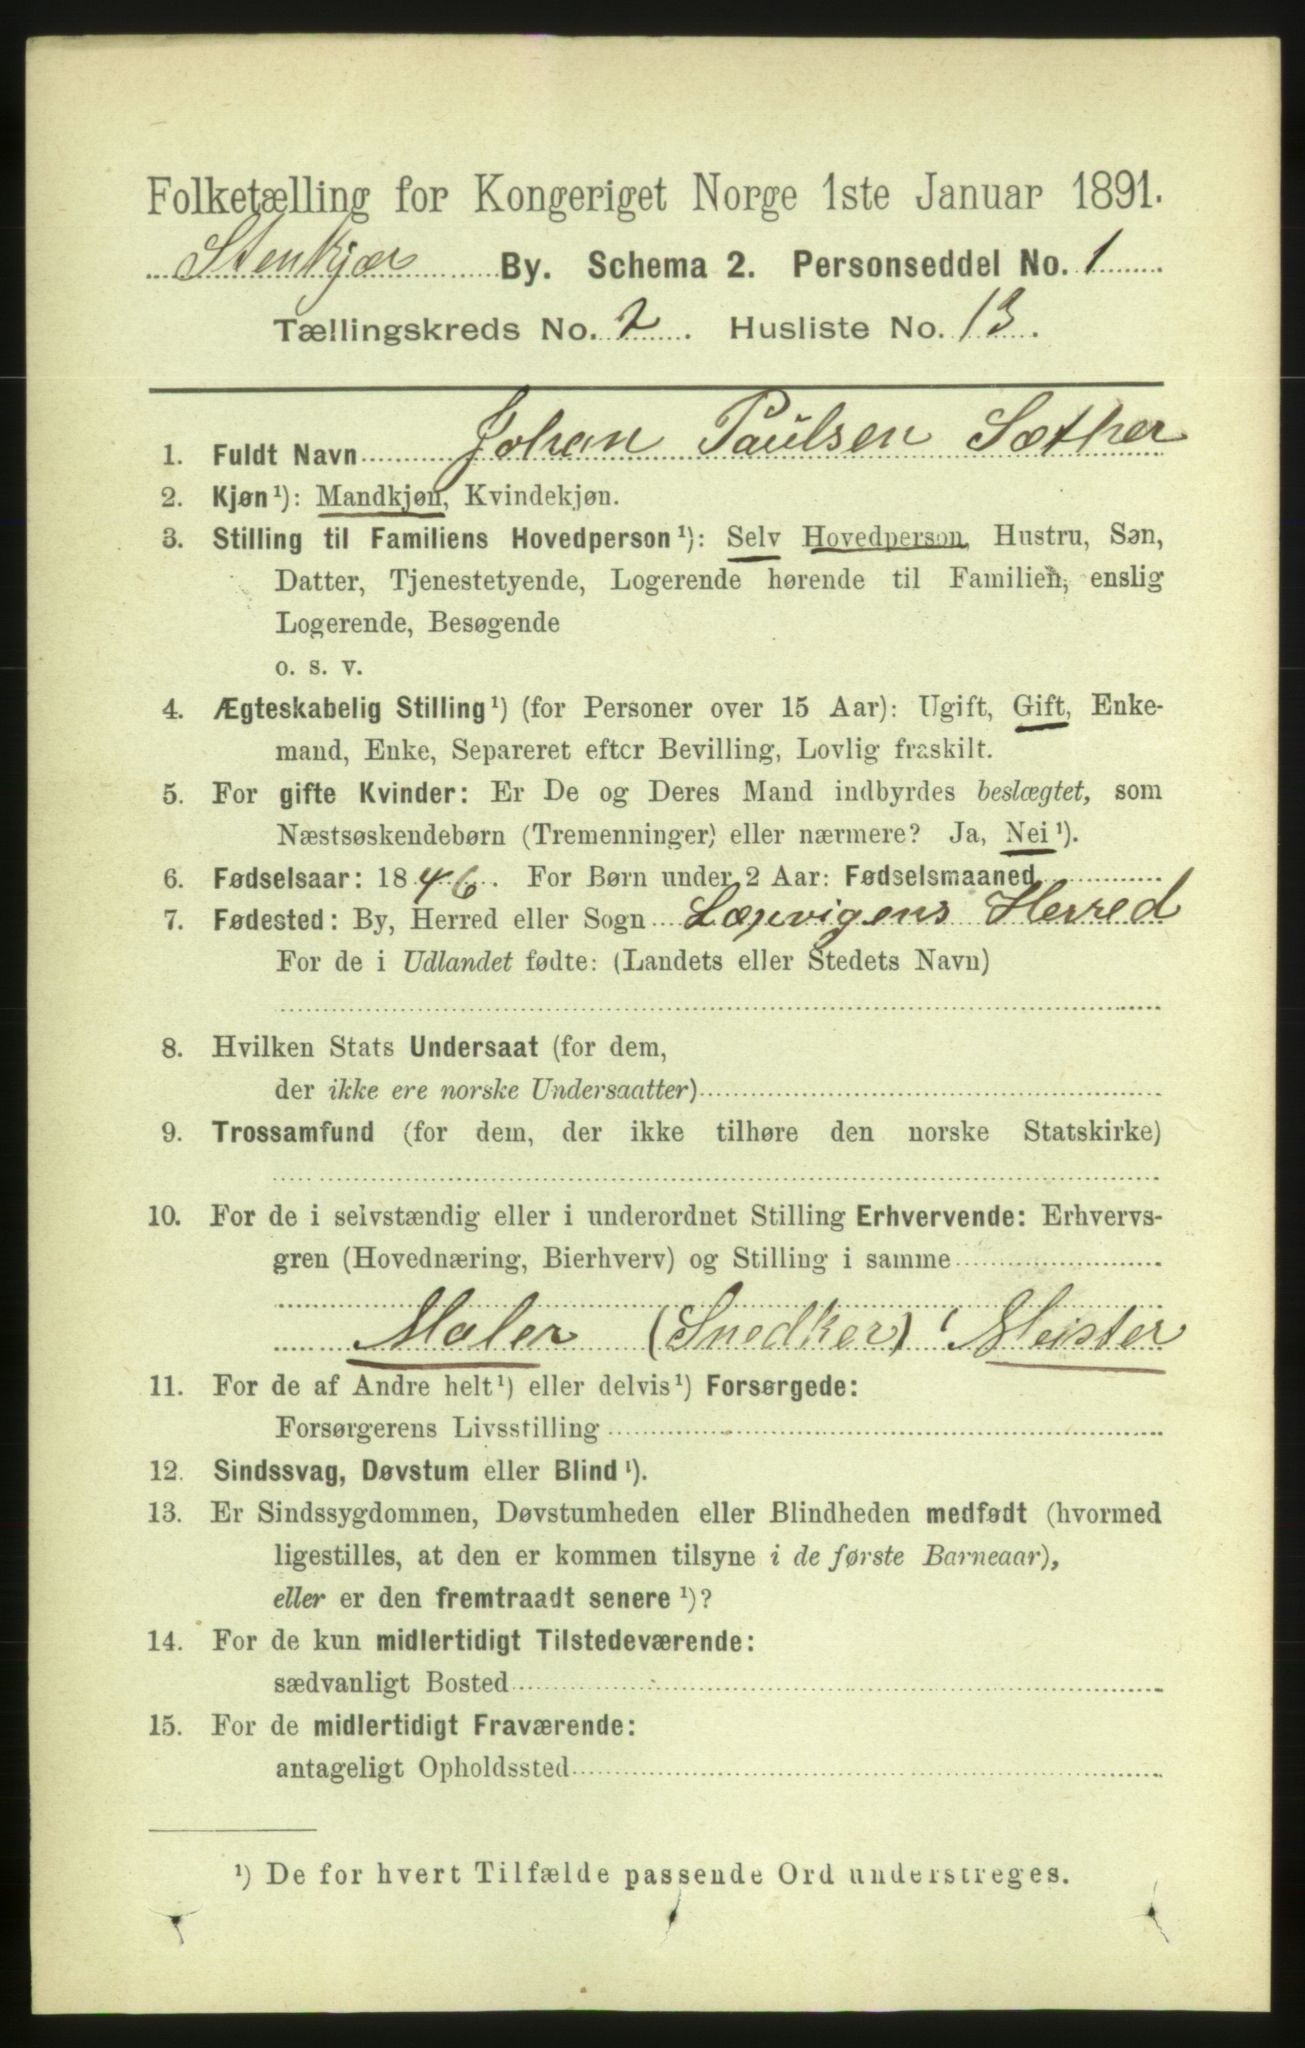 Folketælling for Kongeriget Norge 1ste Januar 1891.
Stenkjær By. Schema 2. Personseddel No. 1
Tællingskreds No. 2. Husliste No. 13.
1. Fuldt Navn Johan Paulsen Sæther
2. Kjøn¹): Mandkjøn, Kvindekjøn.
3. Stilling til Familiens Hovedperson¹): Selv Hovedperson, Hustru, Søn,
Datter, Tjenestetyende, Logerende hørende til Familien, enslig
Logerende, Besøgende
o. s. v.
4. Ægteskabelig Stilling¹) (for Personer over 15 Aar): Ugift, Gift, Enke-
mand, Enke, Separeret efter Bevilling, Lovlig fraskilt.
5. For gifte Kvinder: Er De og Deres Mand indbyrdes beslægtet, som
Næstsøskendebørn (Tremenninger) eller nærmere? Ja, Nei¹).
6. Fødselsaar: 1846. For Børn under 2 Aar: Fødselsmaaned
7. Fødested: By, Herred eller Sogn Lexvigens Herred
For de i Udlandet fødte: (Landets eller Stedets Navn)
8. Hvilken Stats Undersaat (for dem,
der ikke ere norske Undersaatter)
9. Trossamfund (for dem, der ikke tilhøre den norske Statskirke)
10. For de i selvstændig eller i underordnet Stilling Erhvervende: Erhvervs-
gren (Hovednæring, Bierhverv) og Stilling i samme
Maler (Snedker) Mester
11. For de af Andre helt¹) eller delvis¹) Forsørgede:
Forsørgerens Livsstilling
12. Sindssvag, Døvstum eller Blind¹).
13. Er Sindssygdommen, Døvstumheden eller Blindheden medfødt (hvormed
ligestilles, at den er kommen tilsyne i de første Barneaar),
eller er den fremtraadt senere¹)?
14. For de kun midlertidigt Tilstedeværende:
sædvanligt Bosted
15. For de midlertidigt Fraværende:
antageligt Opholdssted
¹) De for hvert Tilfælde passende Ord understreges.